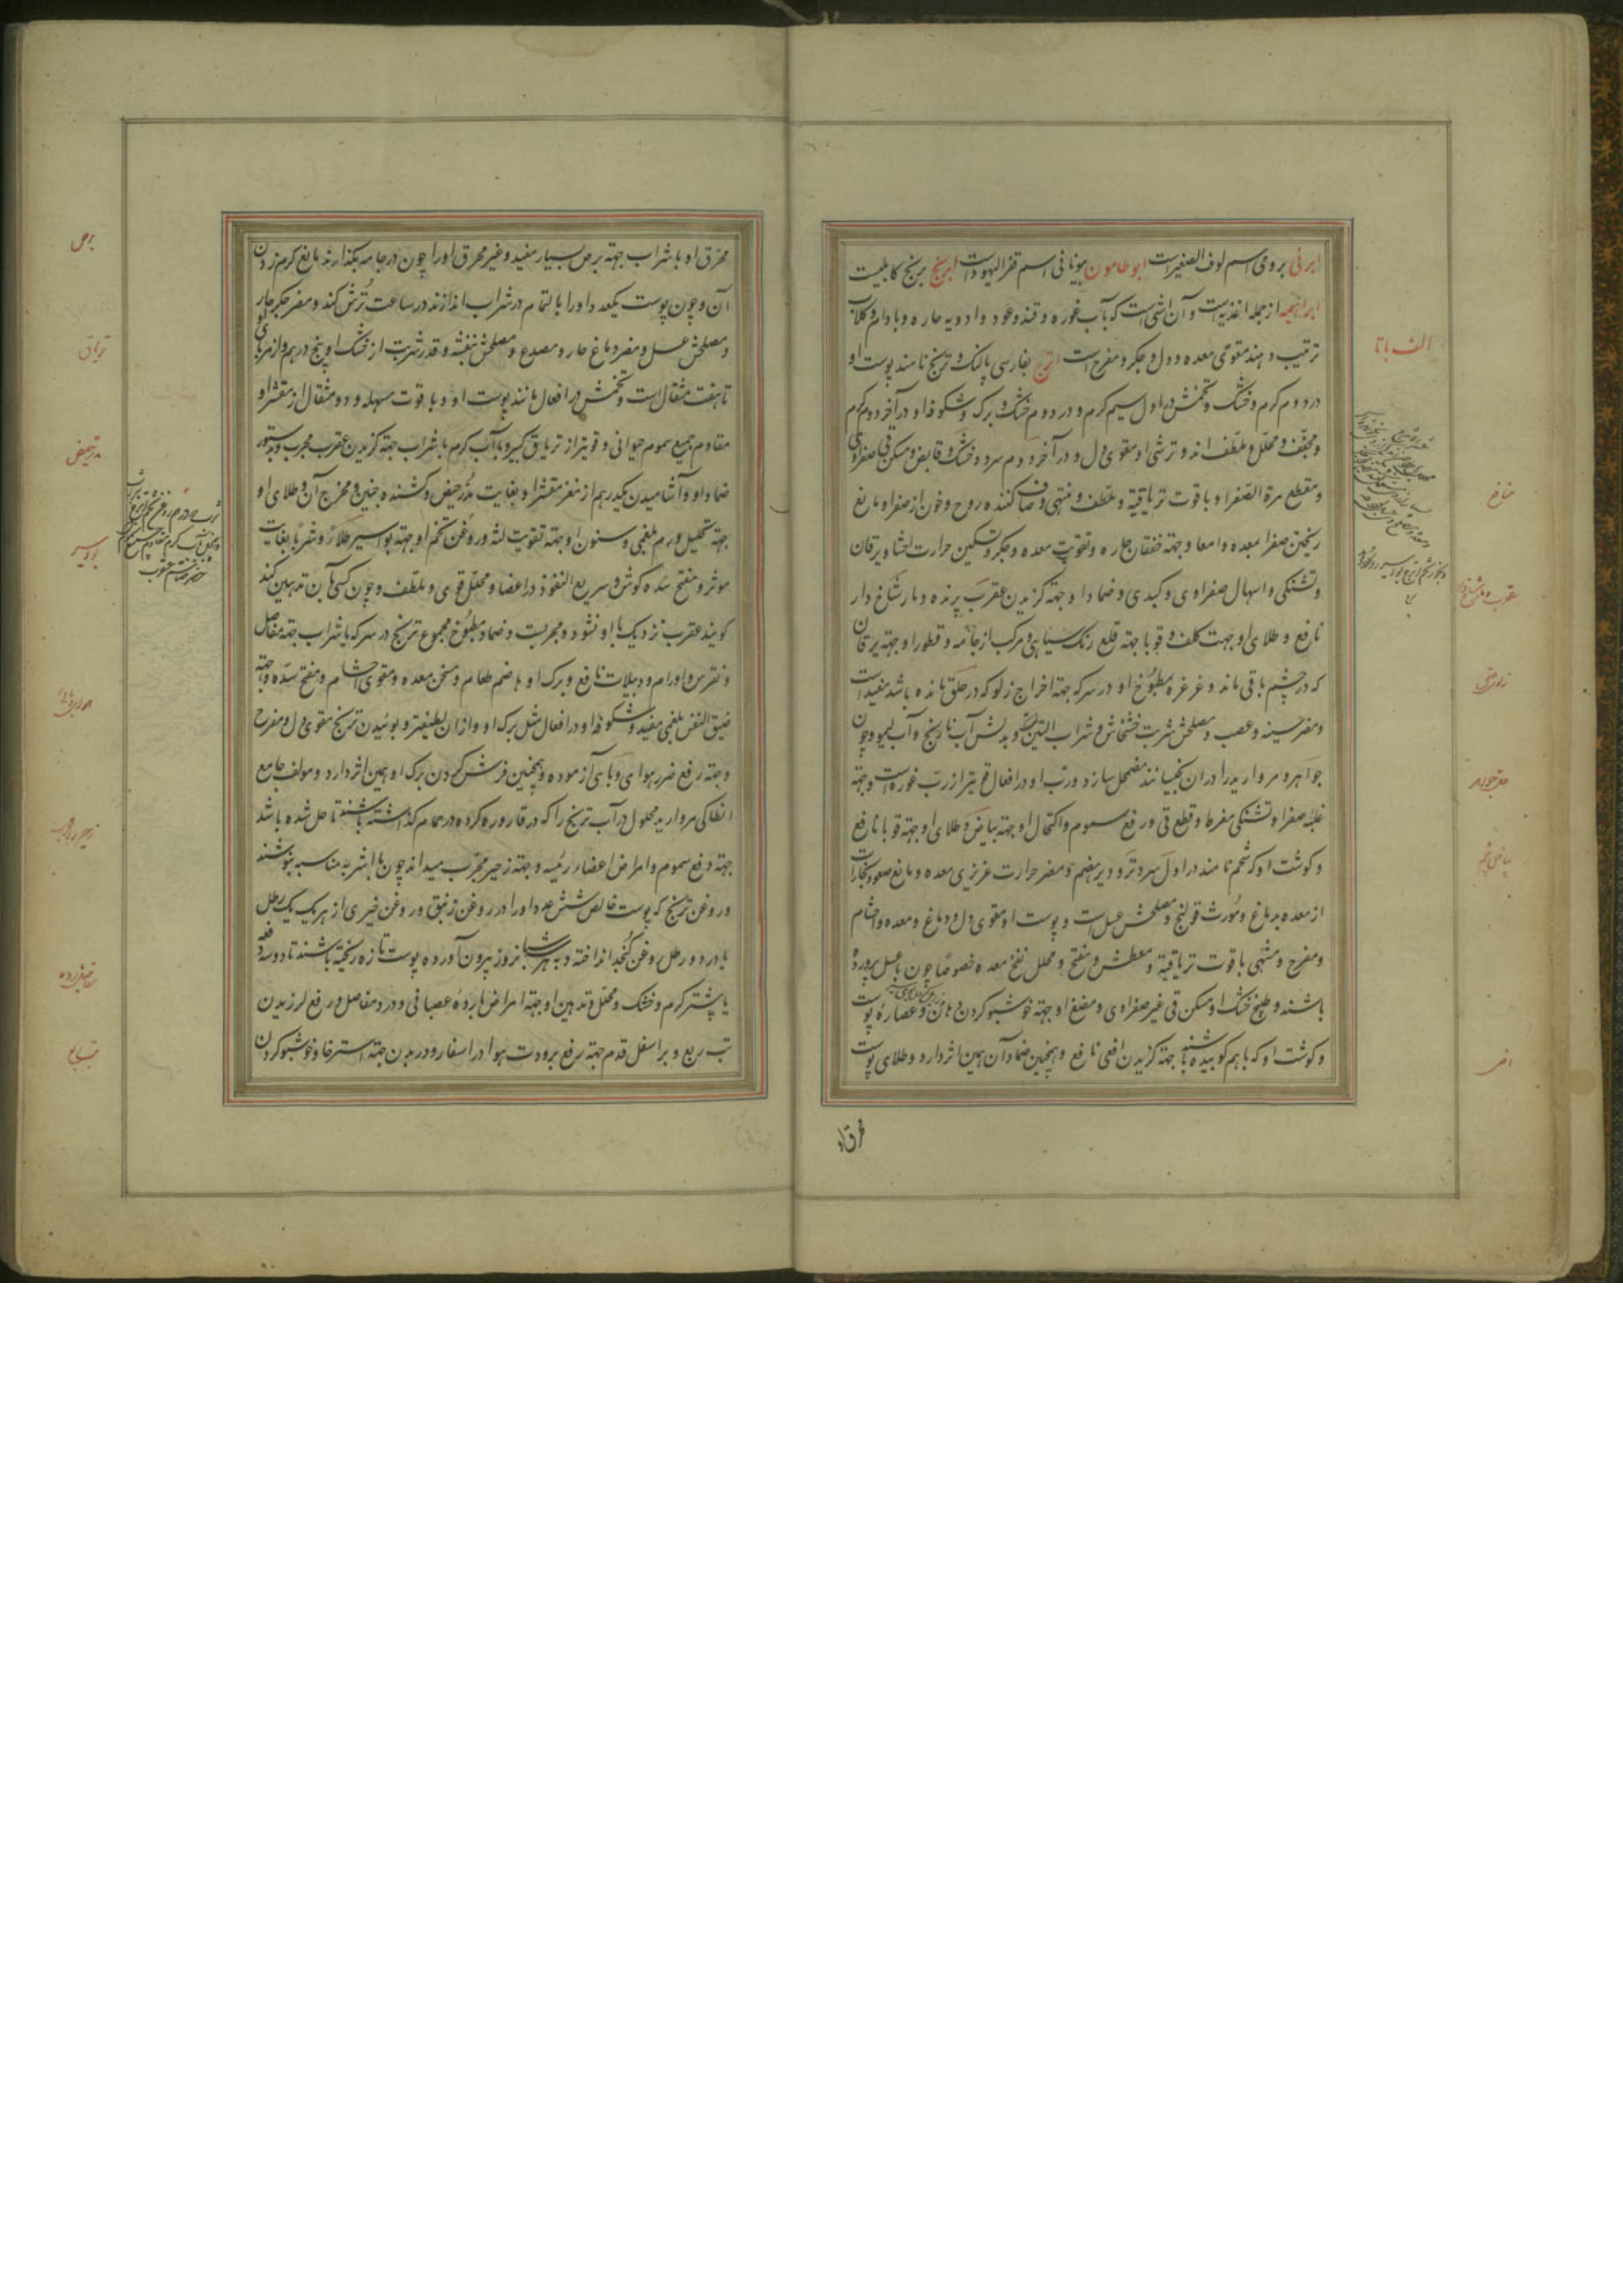 ابرنی برومی اسم لوف الصغیر است ابو طامون بیونانی اسم قفر الیهود است ابرنج برنج کابلیست
ابراهیمیه از جمله اغذیه است و آن اشی است که بآب غوره و قند و عود و ادویه حاره و بادام و کلاب
ترتیب دهند مقوی معده و دل و جکر و مفرح است اترج بفارسی بالنک و ترنج نامند پوست او
در دوم کرم و خشک و تخمش در اول سیم کرم و در دوم خشک و برک و شکوفه او در آخر دوم کرم
و مجفف و محلل و ملطف اند و ترشی او مقوی دل و در آخر دوم سرد و خشک و قابض و مسکن قی صفراوی
و مقطع مرة الصفرا و با قوت تریاقیة و ملطف و مشهی و صاف کننده روح و خون از صفرا و مانع
ریختن صفرا بمعده و امعا و جهة خفقان حاره و تقویت معده و جکر و تسکین حرارت احشا و یرقان
و تشنکی و اسهال صفراوی و کبدی و ضمادا و جهة کزیدن عقرب پرنده و مار شاخ دار
نافع و طلای او جهت کلف و قوبا جهة قلع رنک سیاهی مرکب از جامه و قطور او جهة یرقان
که در چشم باقی ماند و غرغره مطبوخ او در سرکه جهة اخراج زلو که در حلق مانده باشد مفید است
و مضر سینه و عصب و مصلحش شربت خشخاش و شراب التین و بدلش آب نارنج و آب لیمو و چون
جواهر و مروارید را در آن بخیسانند مضمحل سازد و رب او در افعال قویتر از رب غوره است و جهة
غلبه صفرا و تشنکی مفرط و قطع قی و رفع سموم و اکتحال او جهة بیاض و طلای او جهة قوبا نافع
و کوشت او که شحم نامند در اول سرد و تر و دیر هضم و مضر حرارت غریزی معده و مانع صعود بخارات
از معده بدماغ و مورث قولنج و مصلحش عسل است و پوست او مقوی دل و دماغ و معده و احشا
و مفرح و مشهی با قوت تریاقیة و معطش و مفتح و محلل نفخ معده خصوصا چون با عسل پرورده
باشند و طبیخ خشک او مسکن قی غیر صفراوی و مضغ او جهة خوشبو کردن دهان و عصاره پوست
و کوشت او که با هم کوبیده باشند جهة کزیدن افعی نافع و همچنین ضماد آن همین اثر دارد و طلای پوست
محرق او
الف با تا
منافع
عقرب و مار شاخ دار
حل جواهر
بیاض چشم
افعی
محرق او با شراب جهة برص بسیار مفید و غیر محرق او را چون در جامه بکذارند مانع کرم زدن
آن و چون پوست یکعدد او را بالتمام در شراب اندازند در ساعت ترش کند و مضر جکر حار
و مصلحش عسل و مضر دماغ حار و مصدع و مصلحش بنفشه و قدر شربت از خشک او پنج درهم و از مربای او
تا هفت مثقال است و تخمش در افعال مانند پوست او و با قوت مسهله و دو مثقال از مقشر او
مقاوم جمیع سموم حیوانی و قویتر از تریاق کبیر و با آب کرم یا شراب جهة کزیدن عقرب مجرب و بدستور
ضماد او و آشامیدن یکدرهم از مغز مقشر او بغایت مدر حیض و کشنده جنین و مخرج آن و طلای او
جهة تحلیل ورم بلغمی و سنون او جهة تقویت لثه و روغن تخم او جهة بواسیر طلاءً و شرباً بغایت
موثر و مفتح سده کوش و سریع النفوذ در اعضا و محلل قوی و ملطف و چون کسی بآن تدهین کند
کویند عقرب نزدیک باو نشود و مجربست و ضماد مطبوخ مجموع ترنج در سرکه یا شراب جهة مفاصل
و نقرس و اورام و دبیلات نافع و برک او هاضم طعام و مسخن معده و مقوی احشا و مفتح سده و جهة
ضیق النفس بلغمی مفید و شکوفه او در افعال مثل برک او و از آن لطیفتر و بوئیدن ترنج مقوی دل و مفرح
و جهة رفع ضرر هوای وبائی آزموده و همچنین فرش کردن برک او همین اثر دارد و مولف جامع
انطاکی مروارید محلول در آب ترنج را که در قاروره کرده در حمام کذاشته باشند تا حل شده باشد
جهة دفع سموم و امراض اعضاء رئیسه و جهة زحیر مجرب میداند چون با اشربه مناسبه بنوشند
و روغن ترنج که پوست خالص شش عدد او را در روغن زنبق و روغن خیری از هر یک یک رطل
یا در دو رطل روغن کنجد انداخته و به هر شبانروز بیرون آورده پوست تازه ریخته باشند تا دو سه دفعه
یا بیشتر کرم و خشک و محلل و تدهین او جهة امراض بارده عصبانی و درد مفاصل و رفع لرزیدن
تب ربع و بر اسفل قدم جهة رفع برودت هوا در اسفار و در بدن جهة استرخا و خوشبو کردن
برص
تریاق
مدر حیض
بواسیر
تب ربع